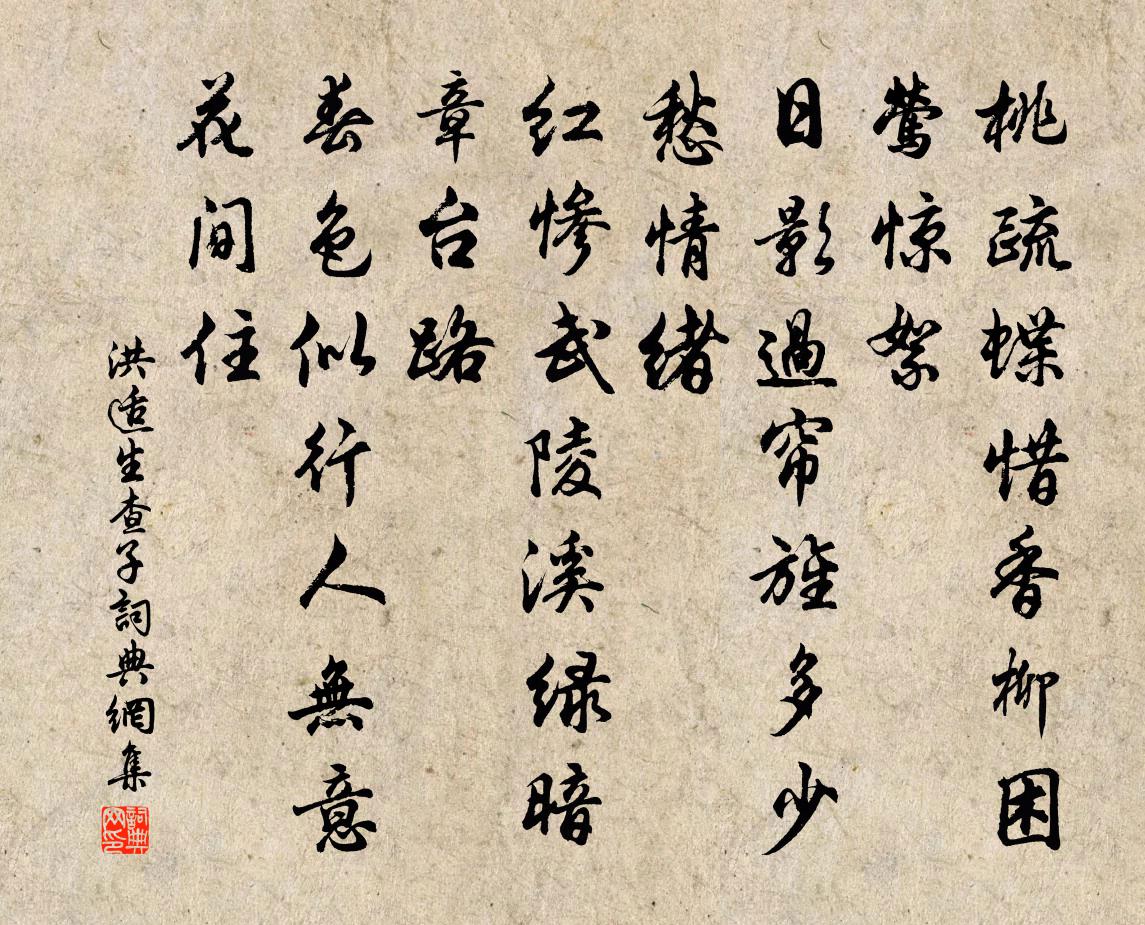 桃疏蝶惜香柳困
莺惊絮
日影過帘旌多少
愁情绪
红惨武陵溪绿暗
章台路
春色似行人無意
花间住
洪适生查子詞典網集
詞典网印